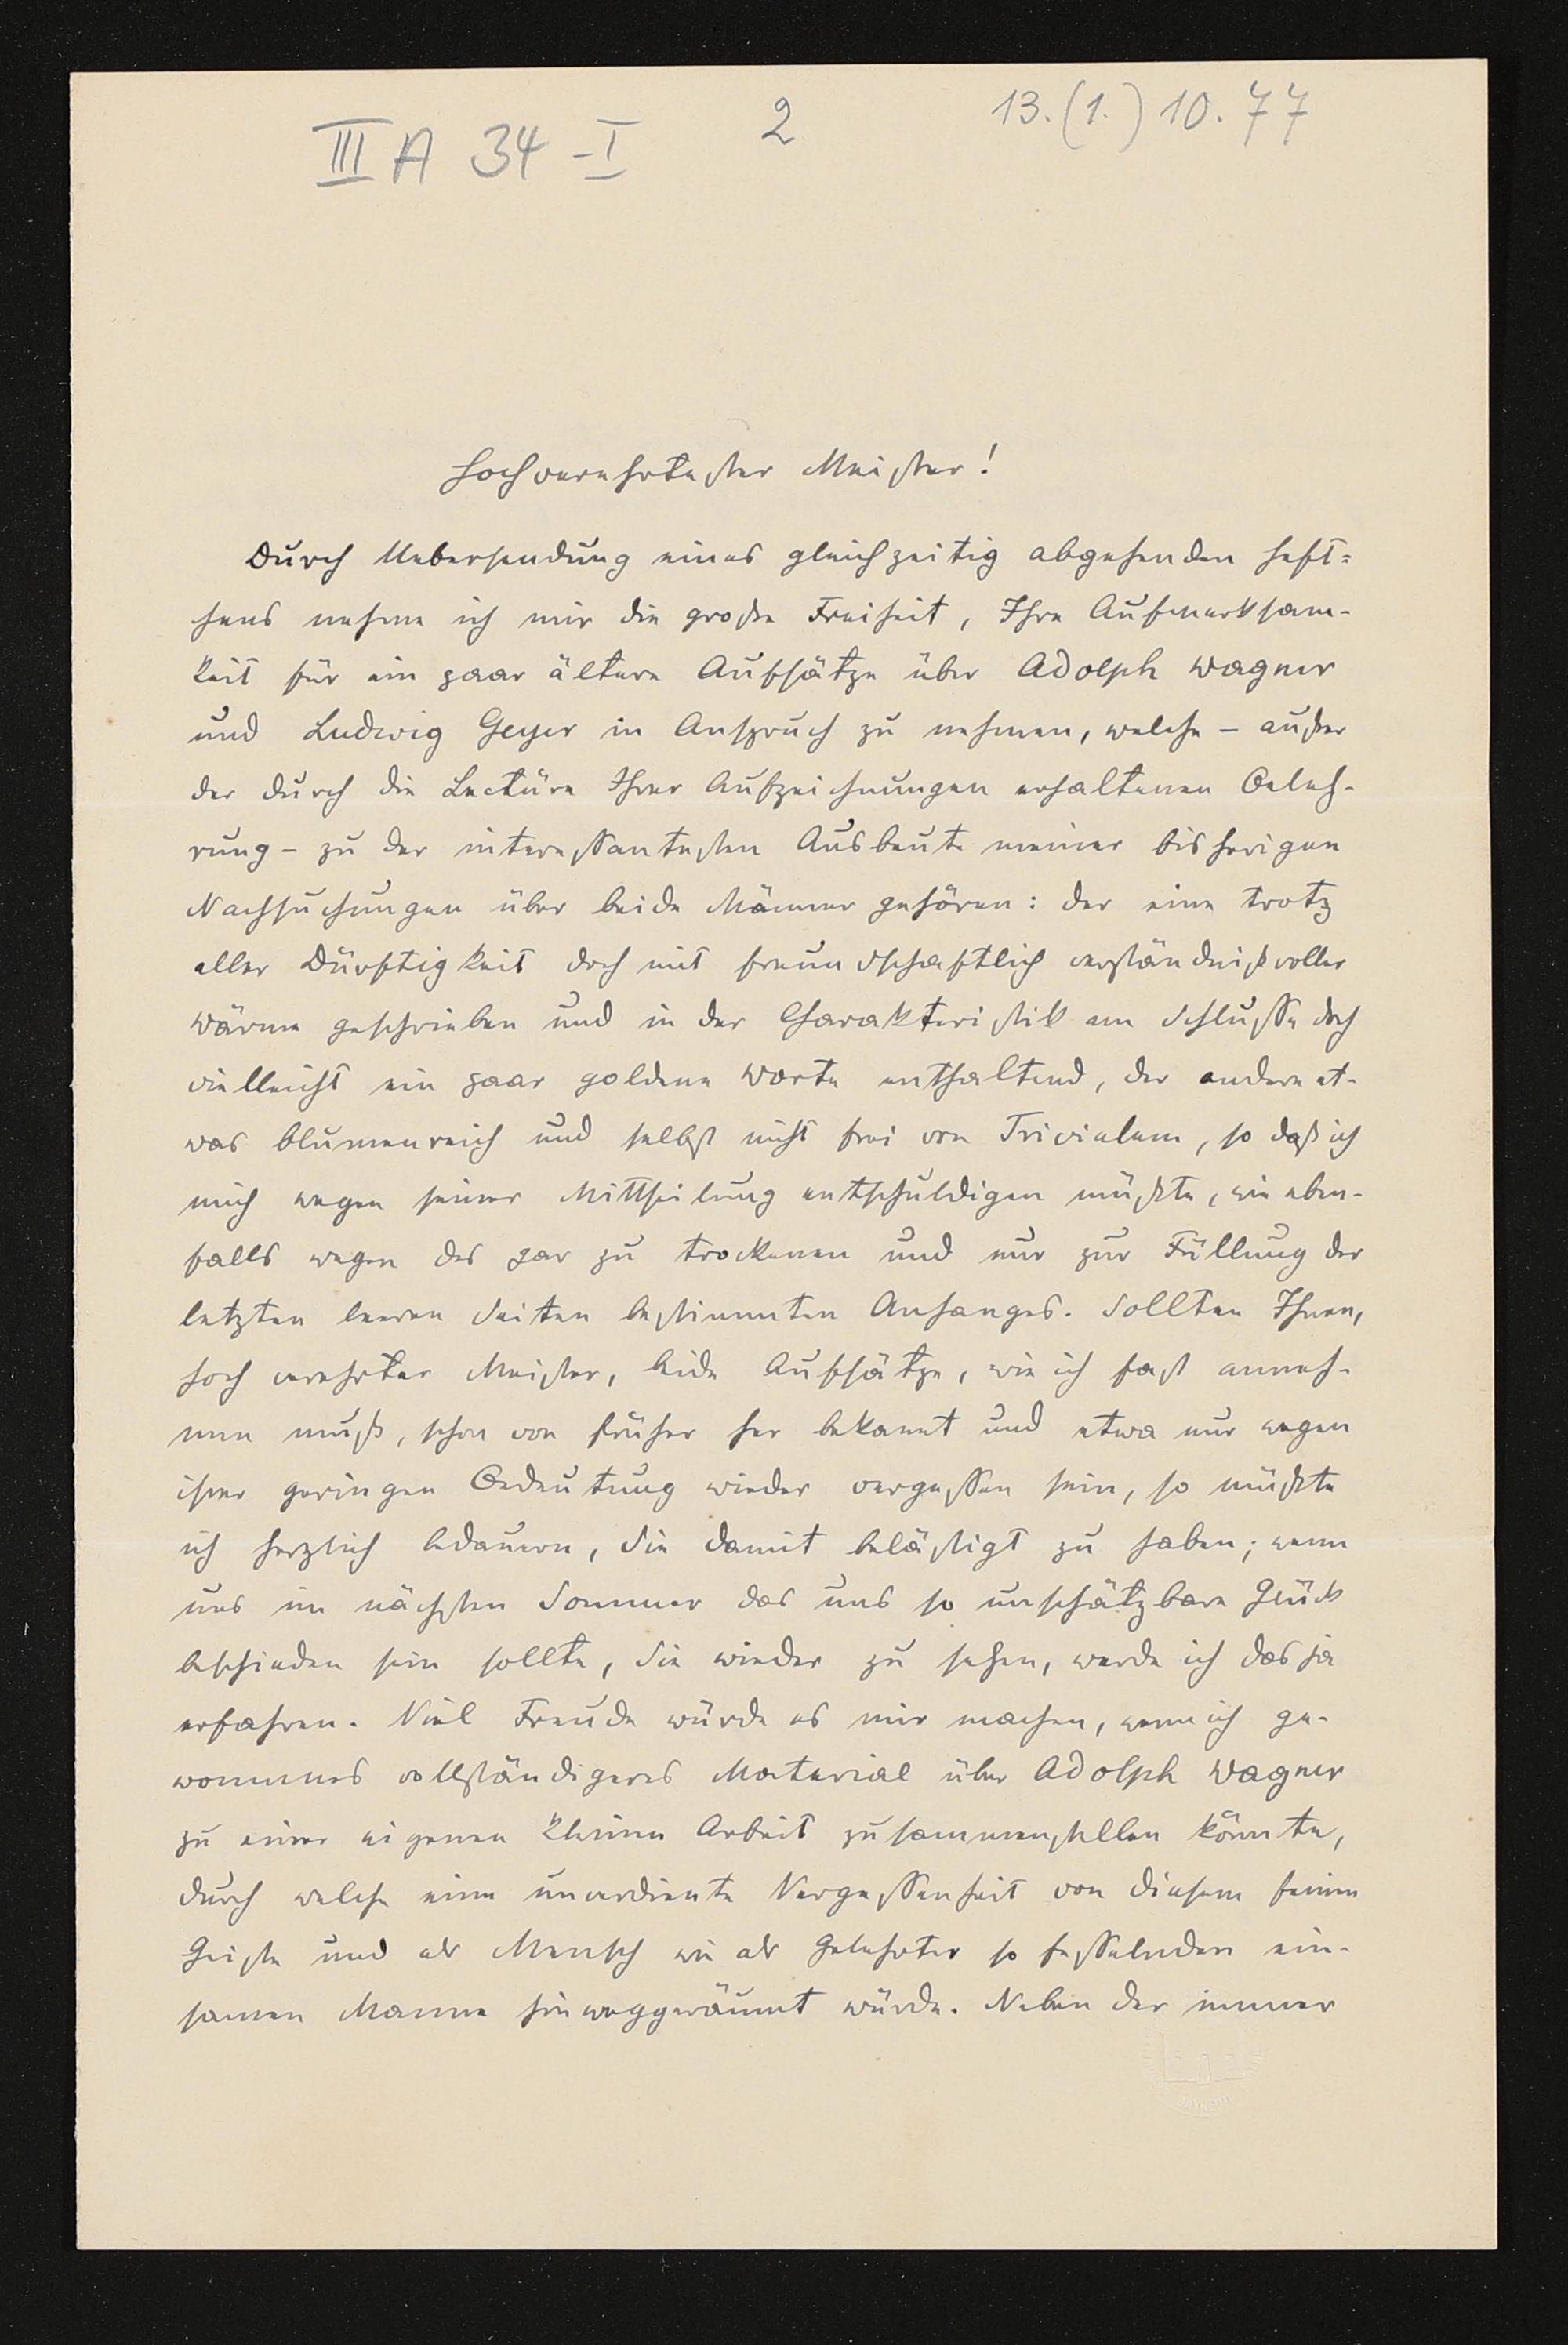 III A 34 - I
2
13.(1.) 10. 77
Hochverehrtester Meister!
Durch Uebersendung eines gleichzeitig abgehenden Heft=
chens nehme ich mir die große Freiheit, Ihre Aufmerksam-
keit für ein paar ältere Aufsätze über Adolph Wagner
und Ludwig Geyer in Anspruch zu nehmen, welche – außer
der durch die Lectüre Ihrer Aufzeichnungen erhaltenen Beleh-
rung – zu der interessantesten Ausbeute meiner bisherigen
Nachsuchungen über beide Männer gehören: der eine trotz
aller Dürftigkeit doch mit freundschaftlich verständnißvoller
Wärme geschrieben und in der Charakteristik am Schlusse doch
vielleicht ein paar goldene Worte enthaltend, der andere et-
was blumenreich und selbst nicht frei von Trivialem, so daß ich
mich wegen seiner Mittheilung entschuldigen müßte, wie eben-
falls wegen des gar zu trockenen und nur zur Füllung der
letzten leeren Seiten bestimmten Anhanges. Sollten Ihnen,
hoch verehrter Meister, beide Aufsätze, wie ich fast anneh-
men muß, schon von früher her bekannt und etwa nur wegen
ihrer geringen Bedeutung wieder vergessen sein, so müßte
ich herzlich bedauern, Sie damit belästigt zu haben; wenn
uns im nächsten Sommer das uns so unschätzbare Glück
beschieden sein sollte, Sie wieder zu sehen, werde ich das ja
erfahren. Viel Freude würde es mir machen, wenn ich ge-
wonnenes vollständigeres Material über Adolph Wagner
zu einer eigenen kleinen Arbeit zusammenstellen könnte,
durch welche eine unverdiente Vergessenheit von diesem feinen
Geiste und als Mensch wie als Gelehrter so fesselnden ein-
samen Manne hinweggeräumt würde. Neben der immer